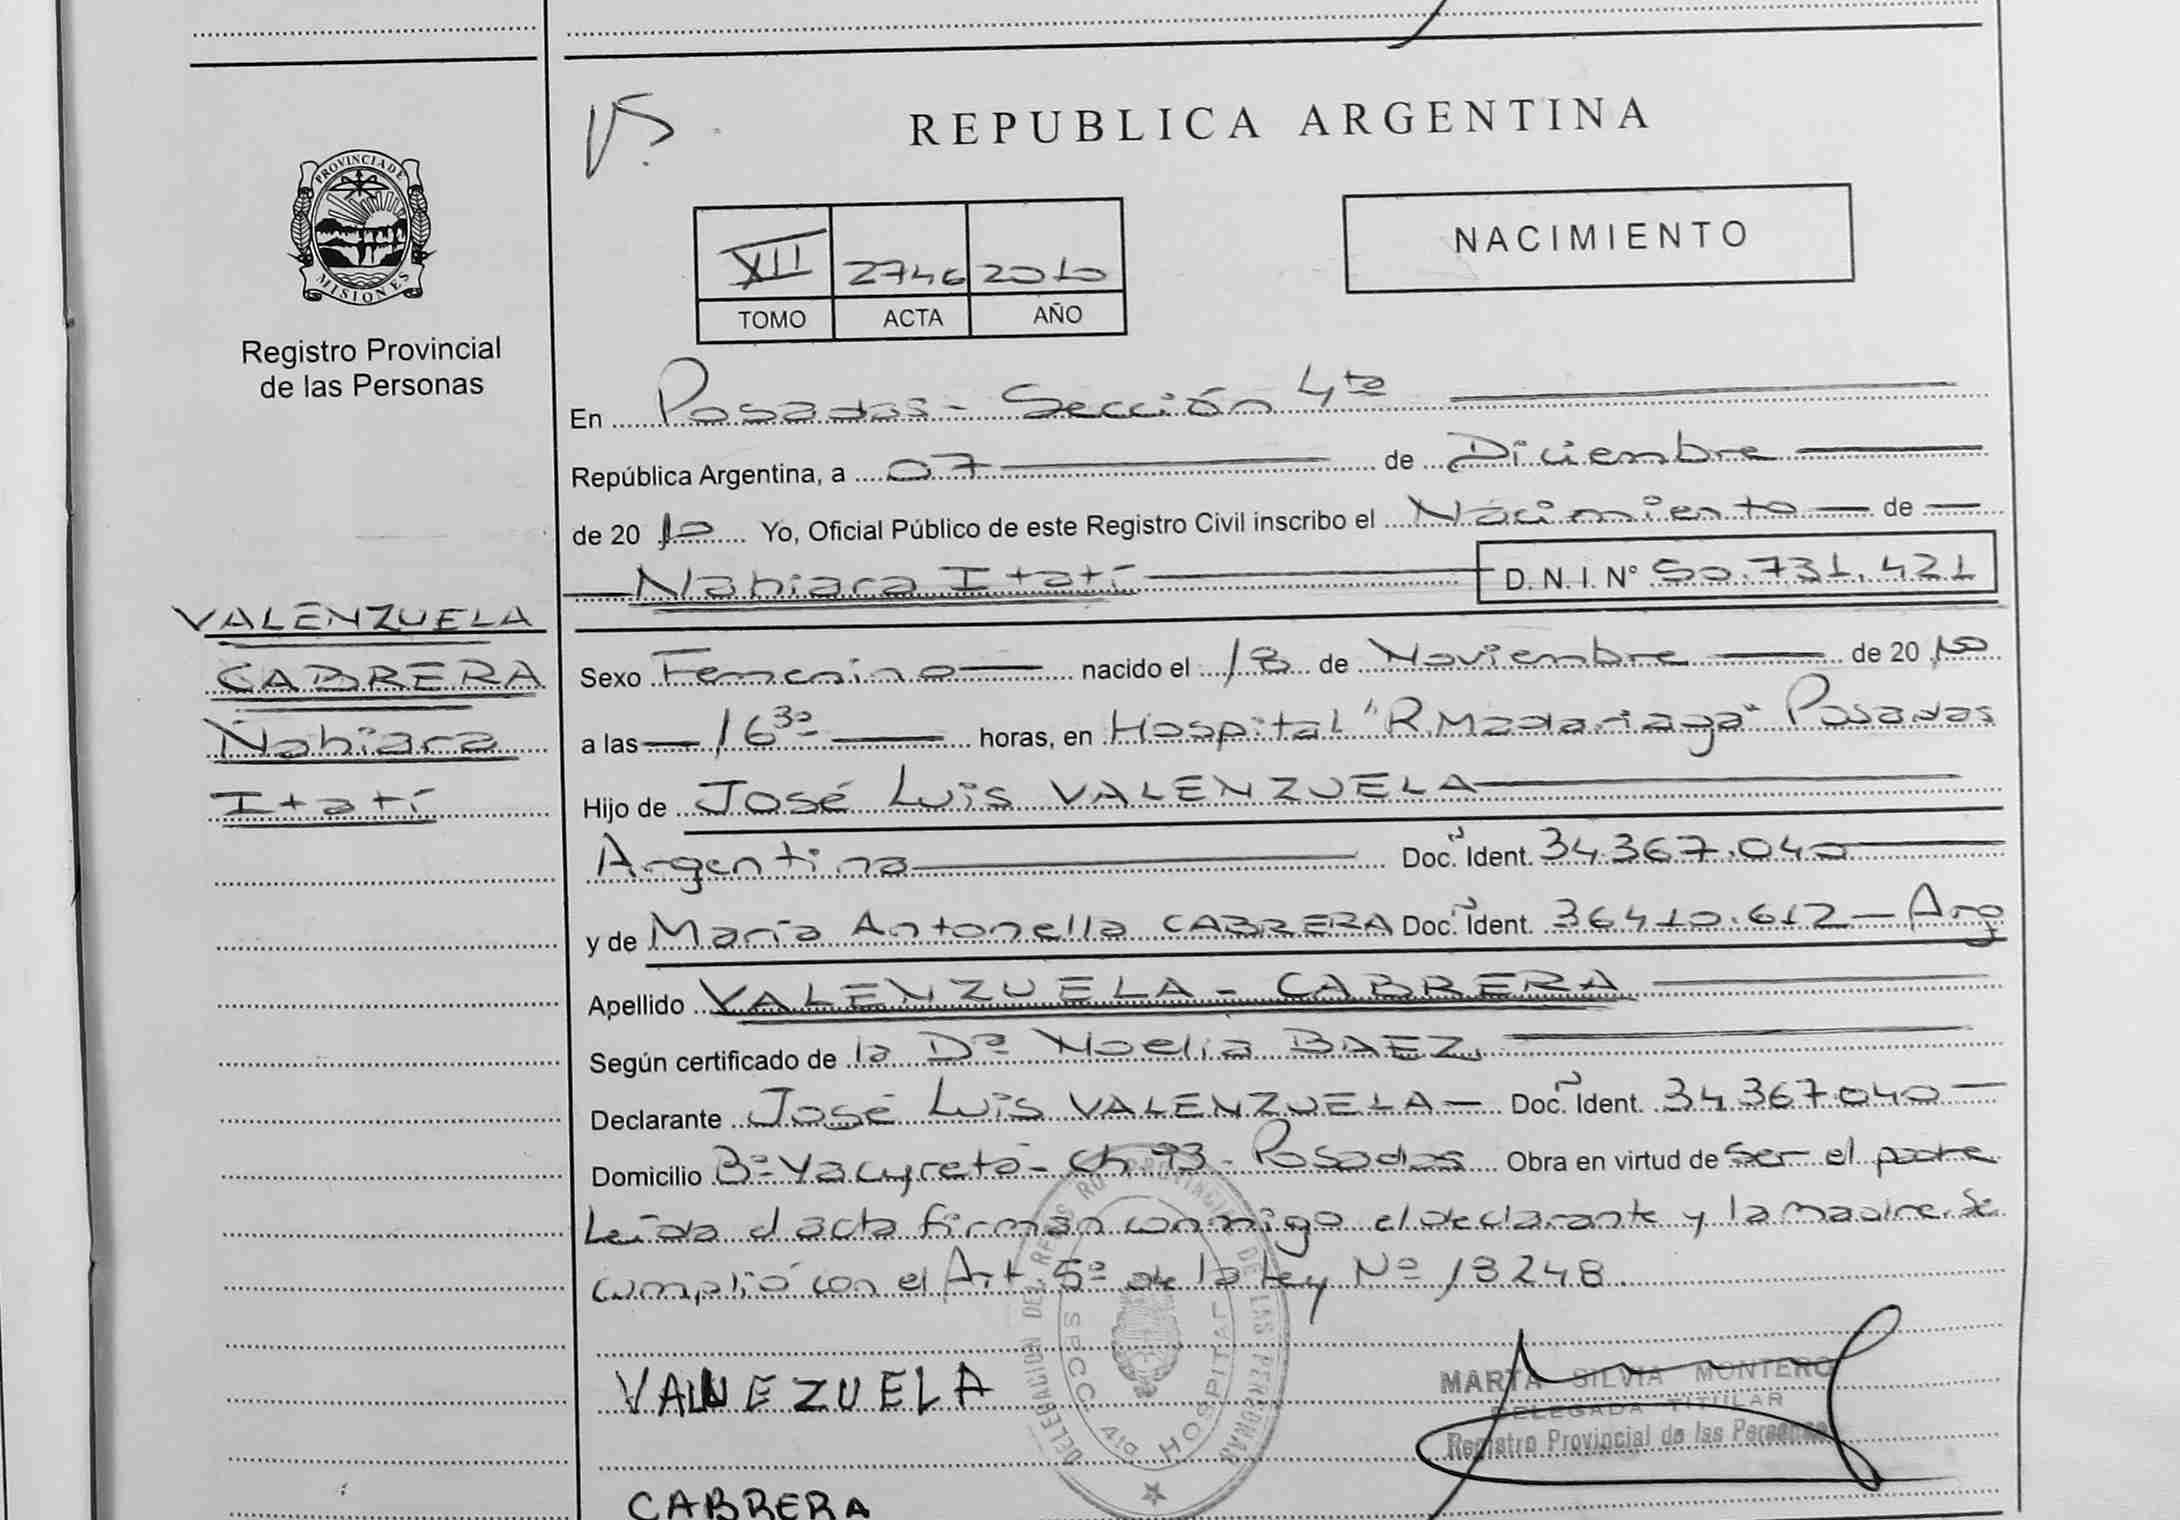 REPUBLICA ARGENTINA
PROVINCIA DE
MISIONES
Registro Provincial
de las Personas
NACIMIENTO
XII 2746 2010
TOMO ACTA AÑO
En Posadas - Sección 4ta
República Argentina, a 07 de Diciembre
de 2010 Yo, Oficial Público de este Registro Civil inscribo el Nacimiento de
Nahiara Itatí D. N. I. N° 50.731.421
VALENZUELA
CABRERA
Nahiara
Itatí
Sexo Femenino nacido el 18 de Noviembre de 2010
a las 16 30 horas, en Hospital "R. Madariaga" Posadas
Hijo de José Luis VALENZUELA
Argentina Doc. Ident. 34.367.040
y de María Antonella CABRERA Doc. Ident. 36.410.612 - Arg
Apellido VALENZUELA - CABRERA
Según certificado de la Dra Noelia BAEZ.
Declarante José Luis VALENZUELA - Doc. Ident. 34.367.040
Domicilio B° Yacyretá - Ch. 93 - Posadas Obra en virtud de ser el padre
Leída el acta firman conmigo el declarante y la madre. Se
cumplió con el Art 5° de la Ley N° 18248.
DELEGACION DEL REGISTRO PROVINCIAL DE LAS PERSONAS
HOSPITAL
VALNEZUELA
MARTA SILVIA MONTERO
DELEGADA TITULAR
Registro Provincial de las Personas
CABRERA